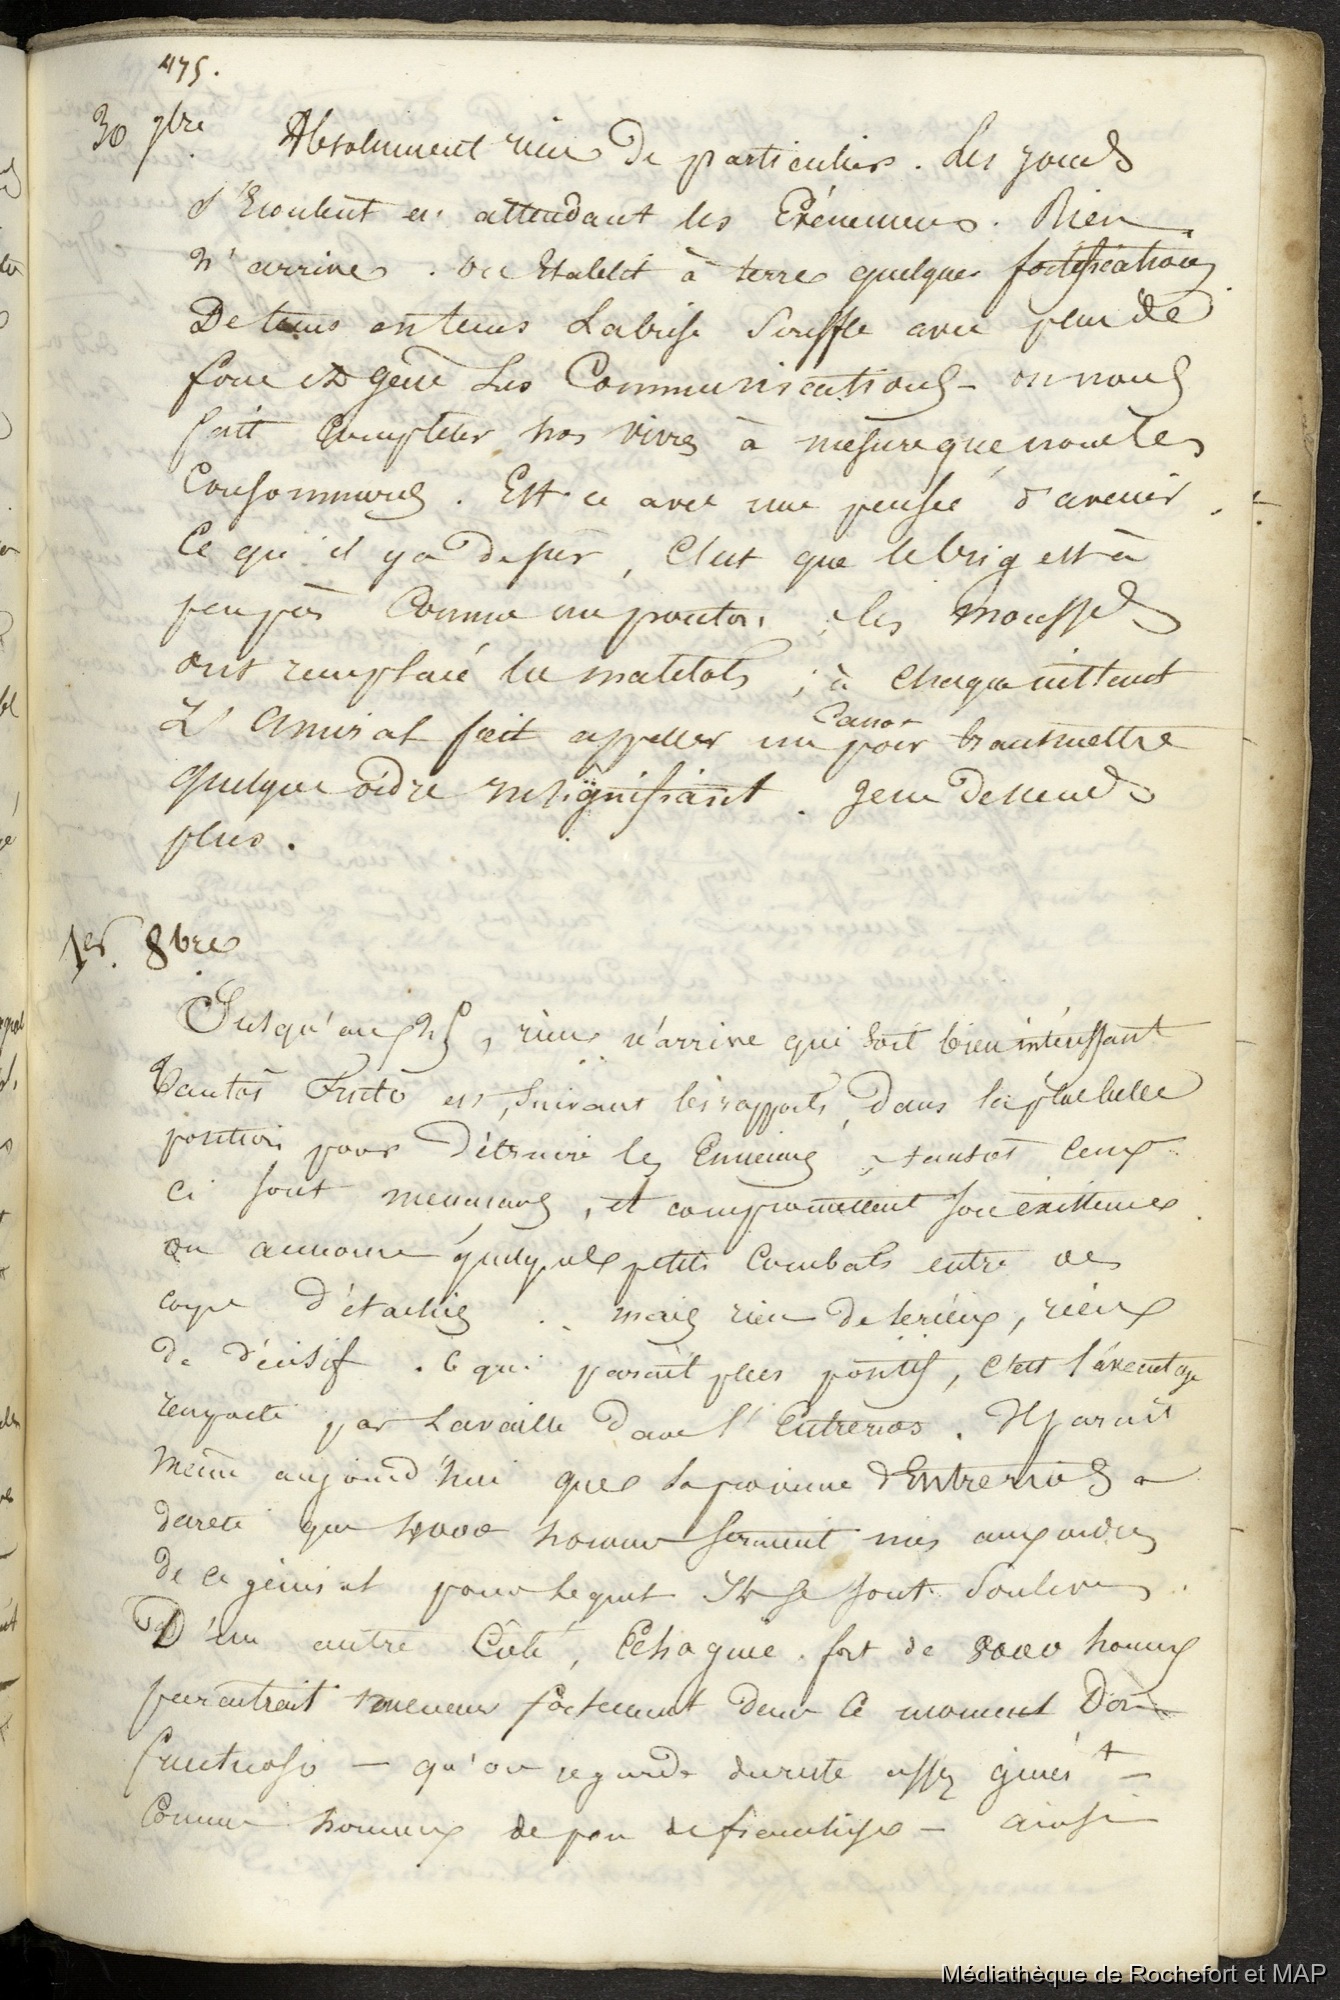 475.
30 7bre Absolument rien de particulier. Les jours
s'écoulent en attendant les Evénemens. Rien
n'arrive. On Etablit à terre quelques fortifications
De tems en tems La brise Souffle avec plus de
force et gêne Les Communications - on nous
fait completer nos vivres à mesure que nous les
Consommons. Est-ce avec une pensée d'avenir
Ce qu'il y a de sûr, C'est que le brig est à
peu près Comme un ponton ; les mousses
ont remplacé les matelots ; à chaque instant
L'Amiral fait appeller un Canot pour transmettre
quelque ordre insignifiant. Je n'en
plus.
1er. 8bre
Jusqu'au 25, rien n'arrive qui soit bien intéressant
Tantôt Fructo est, suivant les rapports, dans la plus belle
position pour détruire les Ennemis, tantôt ceux
ci sont menaçans, et compromettent son existence
on annonce quelques petits Combats entre des
corps détachés .. mais rien de serieux, rien
de décisif. Ce qui parait plus positif, c'est l'avantage
remporté par Lavalle dans l'Entrerios. Il parait
même aujourd'hui que la province d'Entrerios a
decrété que 4000 hommes seraient mis aux ordres
de ce général pour lequel Ils se sont Soulevés.
D'un autre Côté, Echague fort de 8000 hommes
paraitrait menacer fortement dans ce moment Don
Fructuoso — qu'on regarde du reste assez génért —
Comme homme de peu de franchise — ainsi
Médiathèque de Rochefort et MAP